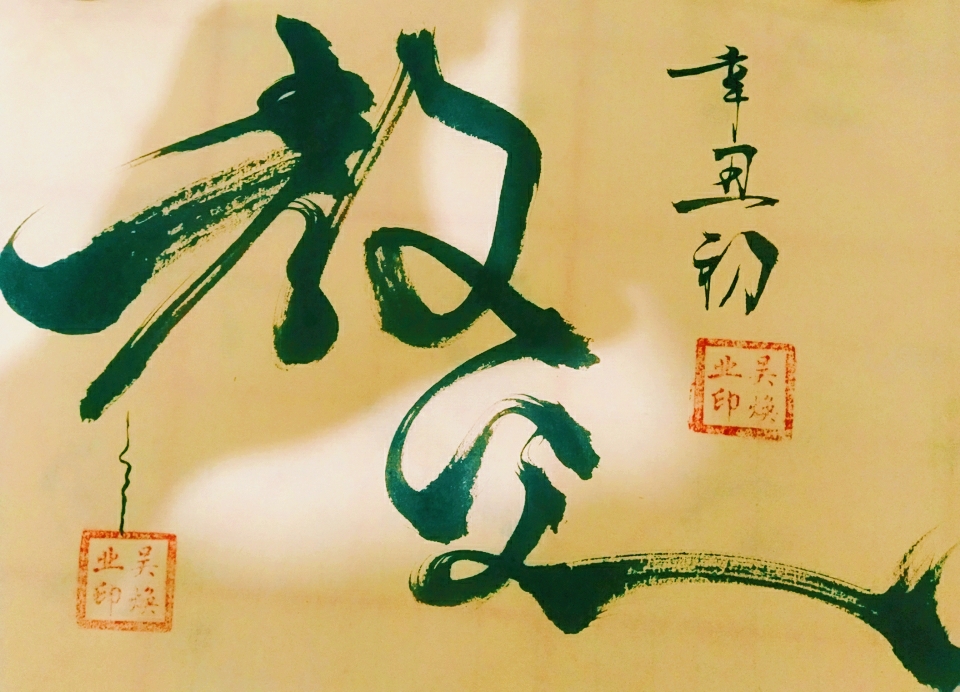 教
辛丑初
吴焕
业印
吴焕
业印